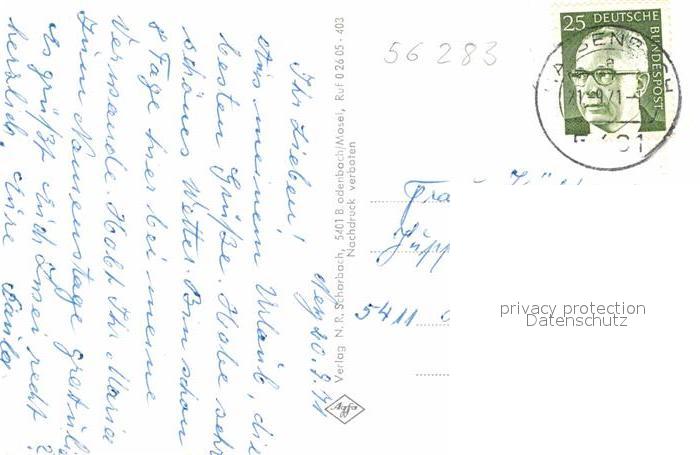 Ney 20.9.71
Ihr Lieben!
Aus meinem Urlaub, die
besten Grüße. Habe sehr
schönes Wetter. Bin schon
8 Tage hier bei meine
Verwande. Habt Ihr Maria
zum Namenstage gratulie
Es grüßt Euch Zwei recht
herzlich, Eure
Verlag N. R. Scharbach, 5401 Brodenbach/Mosel, Ruf 0 26 05 - 403
Nachdruck verboten
Agfa
56283
25 DEUTSCHE
BUNDESPOST
5401
Frau
5411
privacy protection
Datenschutz